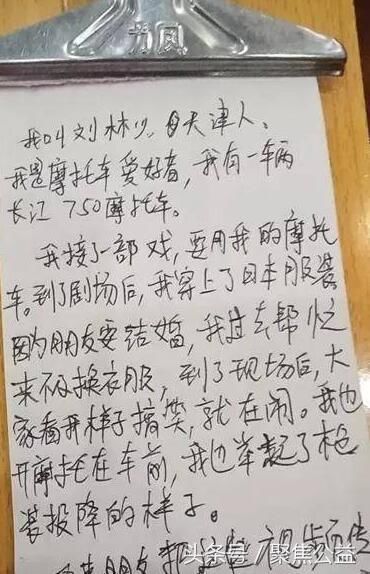 我叫刘林 天津人。
我是摩托车爱好者,我有一辆
长江 750摩托车。
我接了一部戏,要用我的摩托
车。到了剧场后,我穿上了日本服装
因为朋友要结婚,我过去帮忙
来不换衣服,到了现场后,大
家看开样子搞笑,就在闹。我也
开摩托在车前,我也举起了枪
装投降的样子。
朋友
头条号/聚焦公益